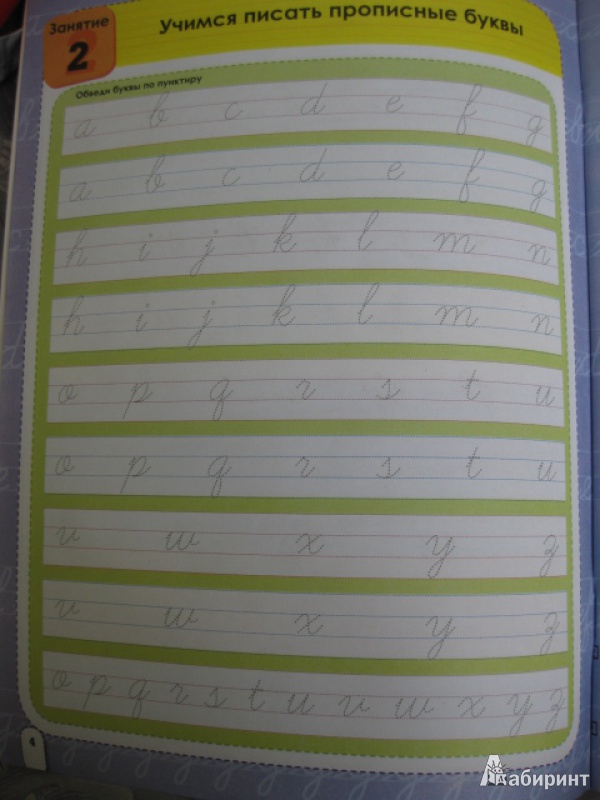 Занятие
2
Учимся писать прописные буквы
Обведи буквы по пунктиру
a b c d e f g
a b c d e f g
h i j k l m n
h i j k l m n
o p q r s t u
o p q r s t u
v w x y z
v w x y z
o p q r s t u v w x y z
4
Лабиринт